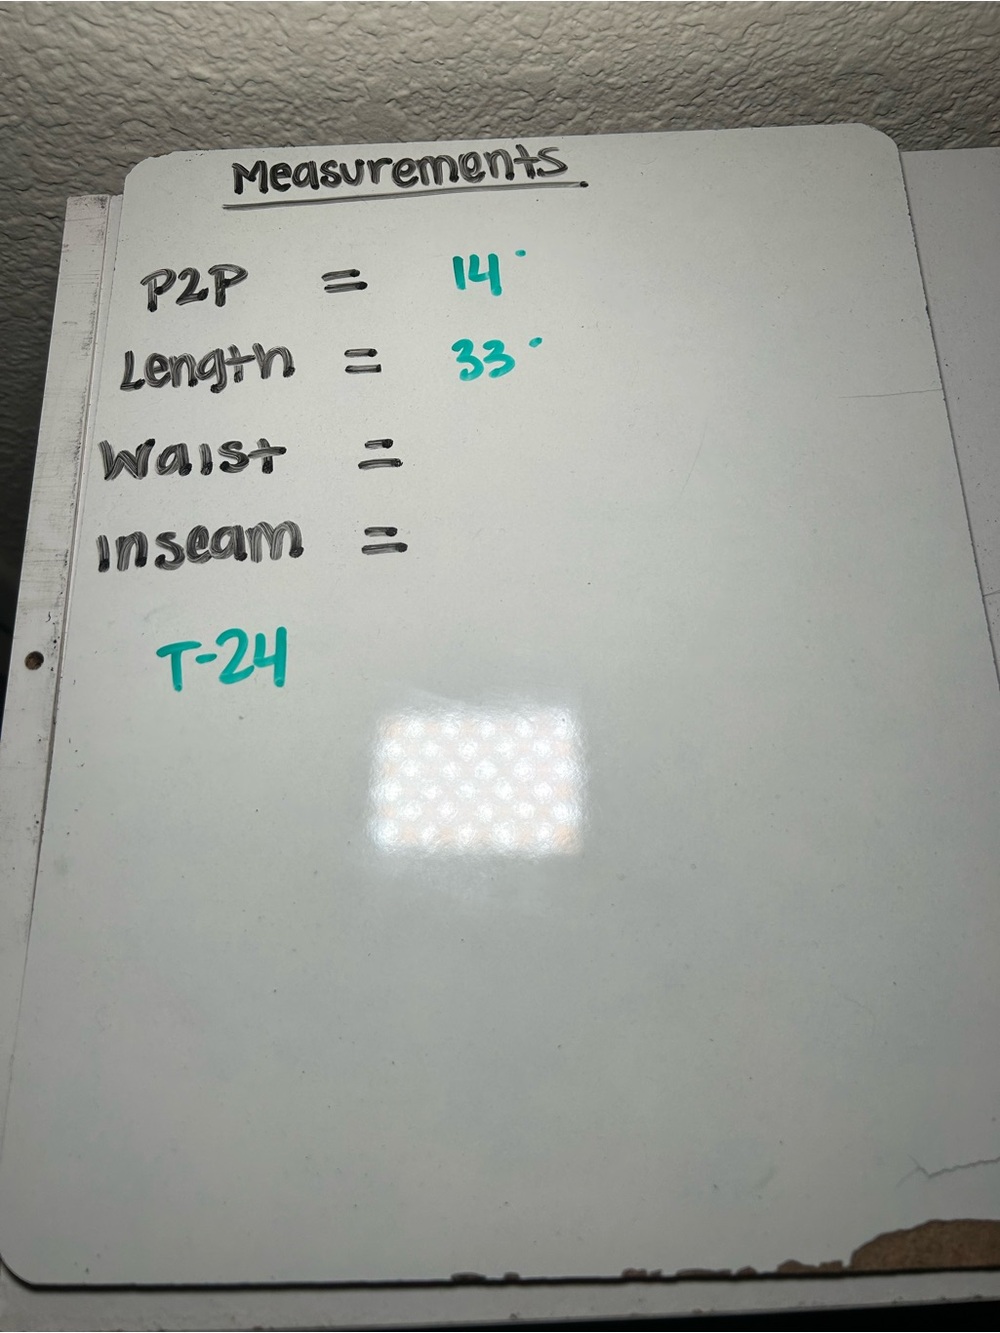 Measurements
P2P = 14"
Length = 33"
Waist =
Inseam =
T-24